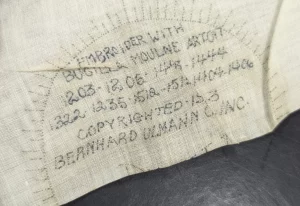 EMBROIDER WITH
BUCILLA MOULINE ART.C.H.
1203-1206-1448-1444
1222-1235-1518-1512-1404-1406
COPYRIGHTED 1513
BERNHARD ULMANN CO. INC.